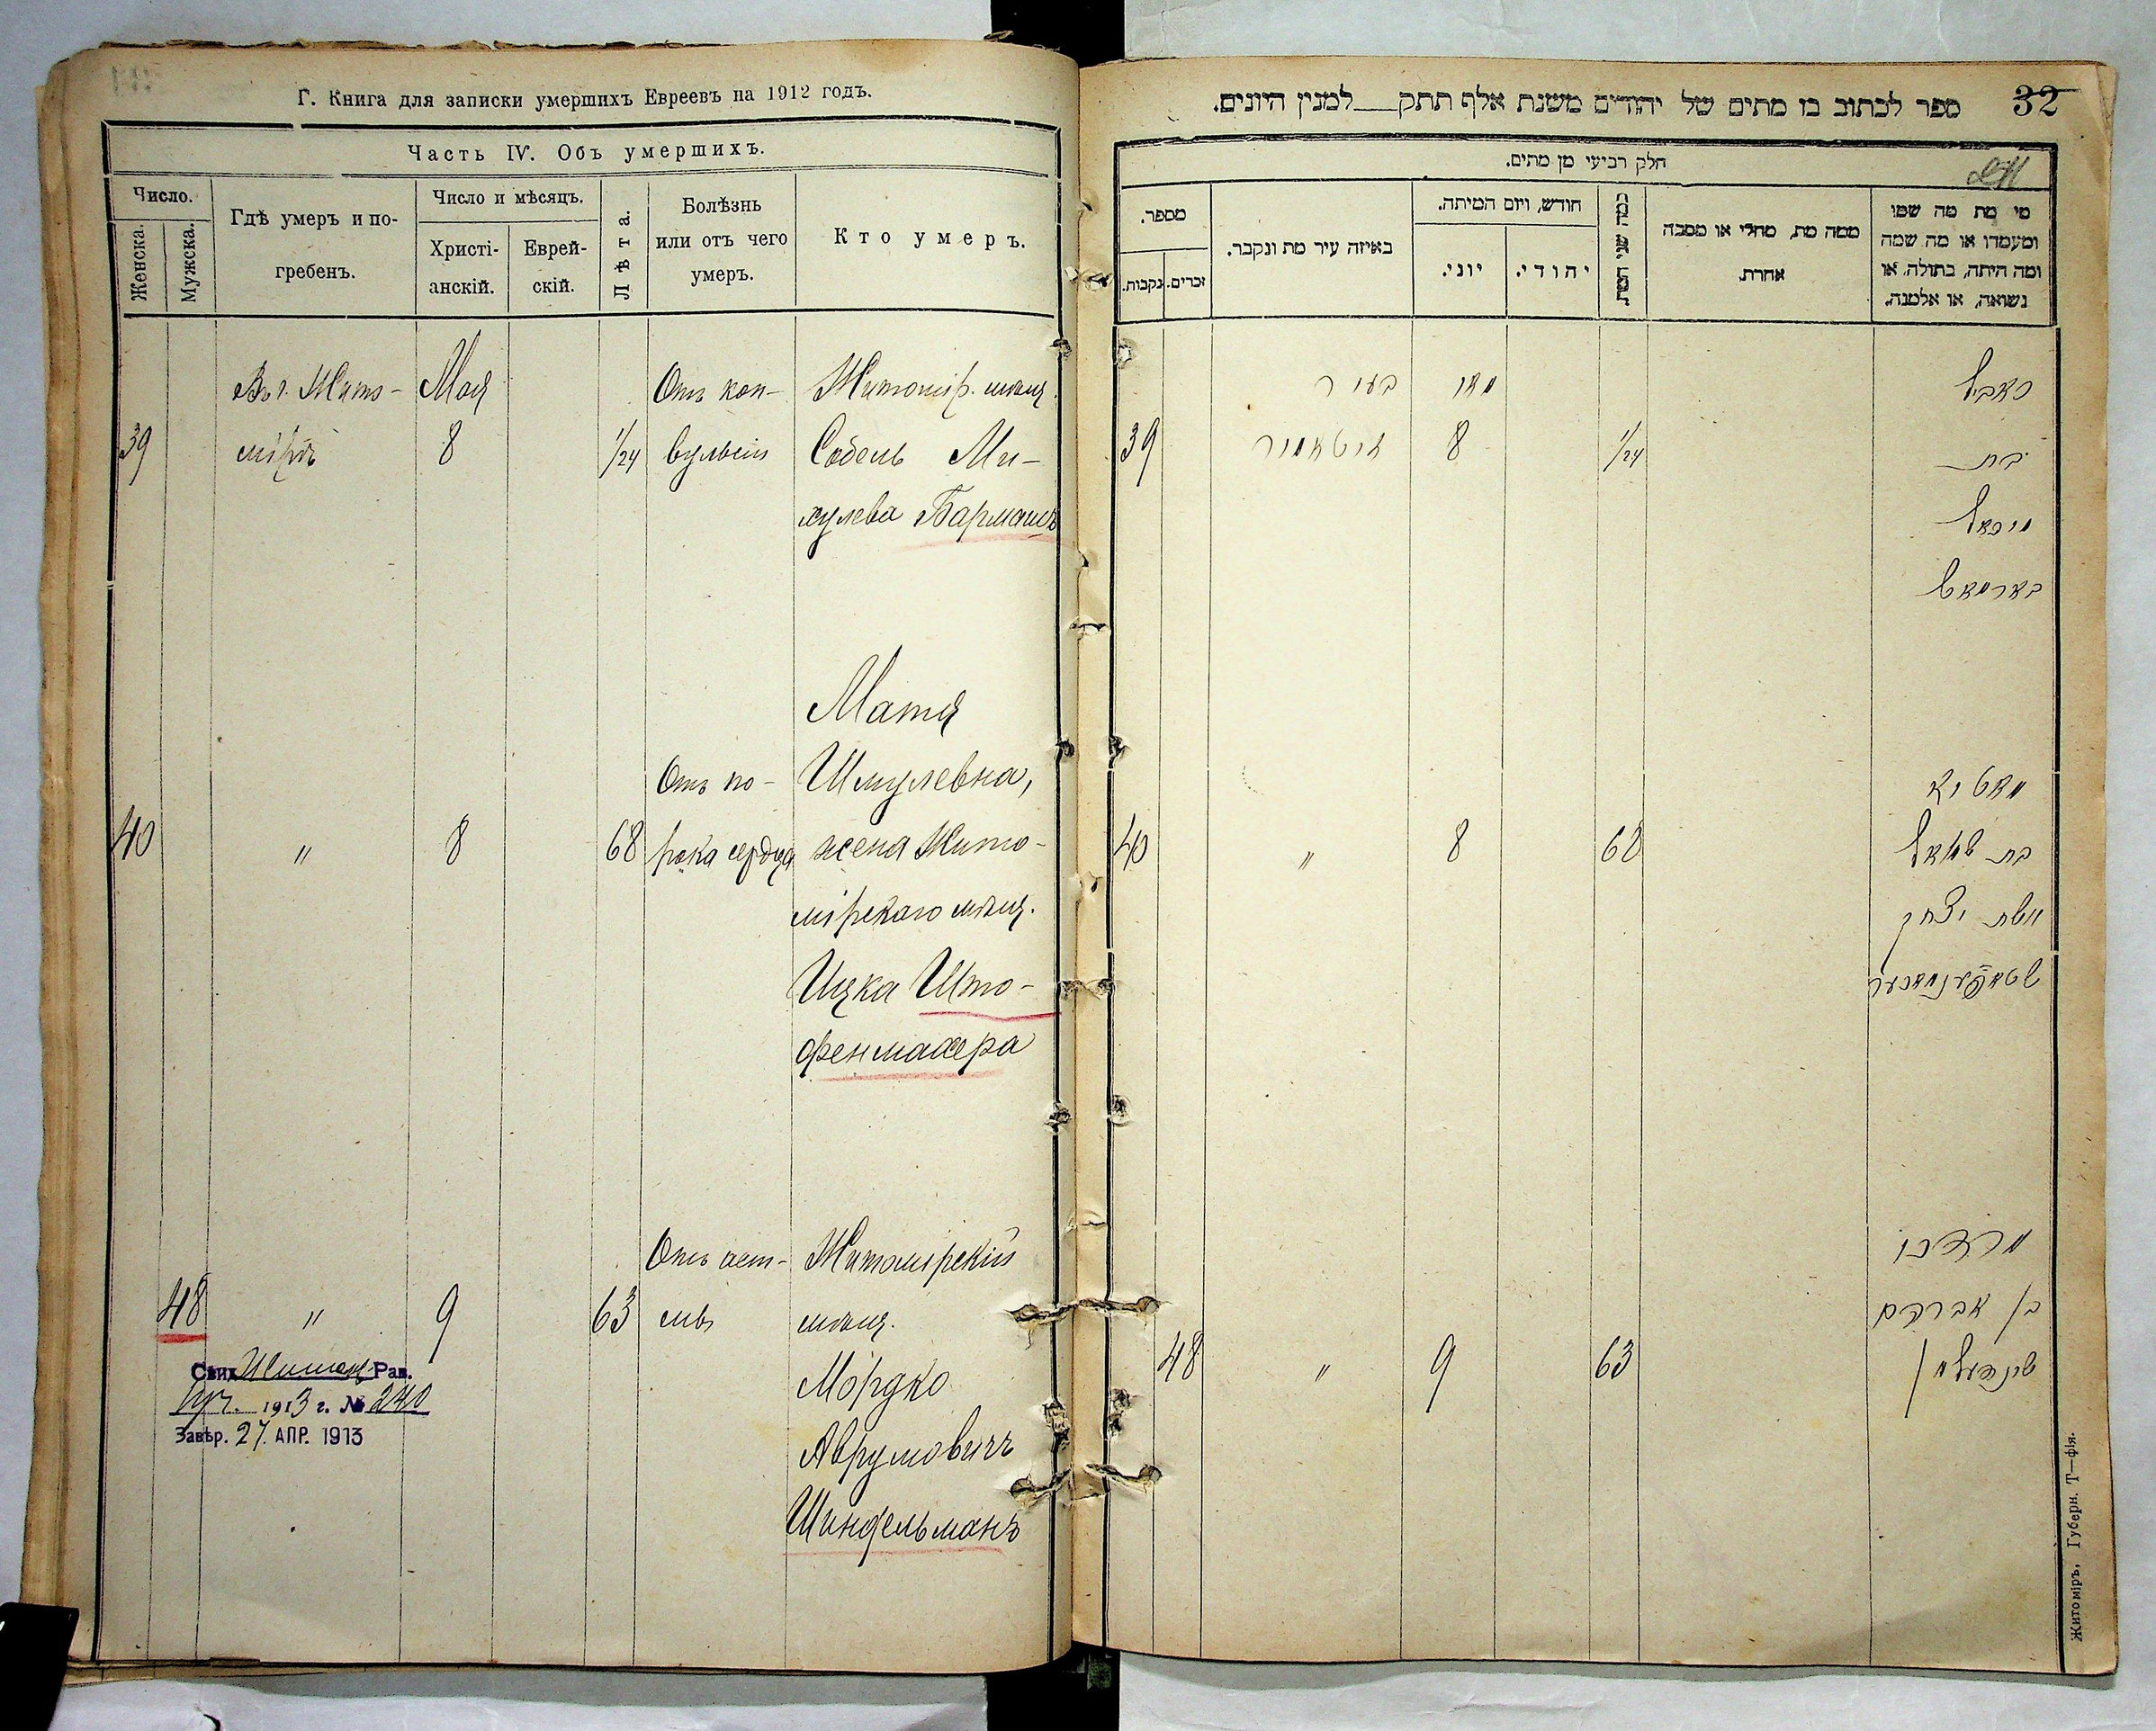 Г. Книга для записки умершихъ Евреевъ на 1912 годъ.
Часть IV. Объ умершихъ.
Число.
Женска.
Мужска.
Гдѣ умеръ и по-
гребенъ.
Число и мѣсяцъ.
Христі-
анскій.
Еврей-
скій.
Лѣта.
Болѣзнь
или отъ чего
умеръ.
Кто умеръ.
Въ г. Жито- Мая Отъ кон- Житомір. мѣщ.
39 мірѣ 8 1/24 вульсіи Собель Ми-
хулева Бармашъ
Матя
Отъ по- Шмулевна,
40 " 8 68 рока сердца жена Жито-
мірскаго мѣщ.
Ицка Што-
фенмахера
Отъ аст- Житомірскій
48 " 9 63 мы мѣщ.
Мордко
Аврумовичъ
Шиндельманъ
Свид. Рав.
1913 г. № 240
Завѣр. 27 АПР. 1913
32
ספר לכתוב בו מתים של יהודים משנת אלף תתק למנין היונים.
חלק רביעי מן מתים.
מספר.
נקבות.
זכרים.
באיזה עיר מת ונקבר.
חודש, ויום המיתה.
יוני.
יהודי.
כמה שני המת.
ממה מת, מחלי או מסבה
אחרת.
מי מת מה שמו
ומעמדו או מה שמה
ומה היתה, בתולה, או
נשואה, או אלמנה.
בעיר מאי
39 זיטאמיר 8 1/24 בת
מיכאל
בארמאש
מאטיא
40 " 8 68 בת שמואל
אשת יצחק
שטאפענמאכער
מרדכי
בן אברהם
48 " 9 63 שינדעלמן
Житоміръ, Губерн. Т—фія.